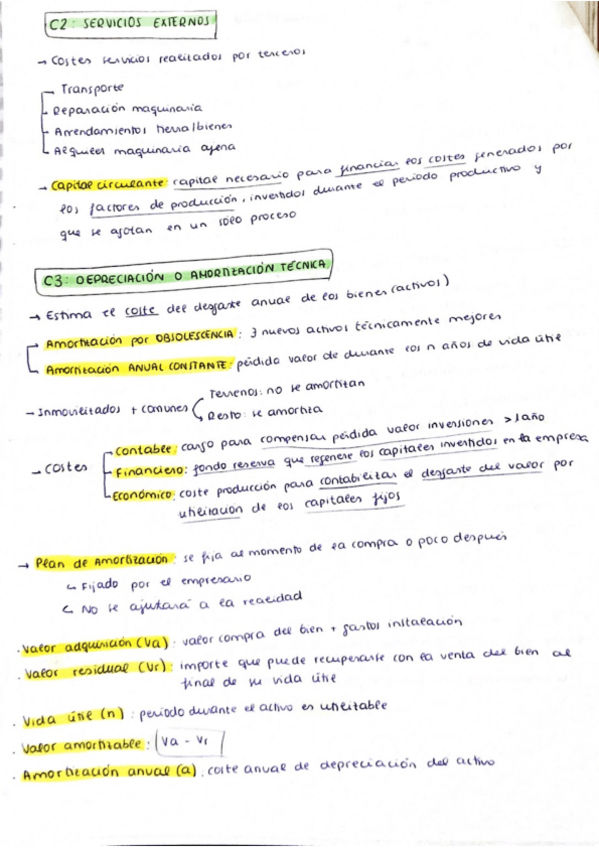 C2: SERVICIOS EXTERNOS
→ Costes servicios realizados por terceros
Transporte
Reparación maquinaria
Arrendamientos tierra/bienes
Alquileres maquinaria ajena
→ Capital circulante: capital necesario para financiar los costes generados por
los factores de producción, invertidos durante el periodo productivo y
que se agotan en un solo proceso
C3: DEPRECIACIÓN O AMORTIZACIÓN TÉCNICA
→ Estima el coste del desgaste anual de los bienes (activos)
Amortización por OBSOLESCENCIA: 3 nuevos activos técnicamente mejores
Amortización ANUAL CONSTANTE: pérdida valor de durante los n años de vida útil
- Inmovilizados + comunes
Terrenos: no se amortizan
Resto: se amortiza
- Costes
Contable: cargo para compensar pérdida valor inversiones > 1 año
Financiero: fondo reserva que regenere los capitales invertidos en la empresa
Económico: coste producción para contabilizar el desgaste del valor por
utilización de los capitales fijos
→ Plan de Amortización: se fija al momento de la compra o poco después
↳ Fijado por el empresario
↳ No se ajustará a la realidad
. Valor adquisición (Va): valor compra del bien + gastos instalación
. Valor residual (Vr): importe que puede recuperarse con la venta del bien al
final de su vida útil
. Vida útil (n): periodo durante el activo es utilizable
. Valor amortizable: Va - Vr
. Amortización anual (a). coste anual de depreciación del activo